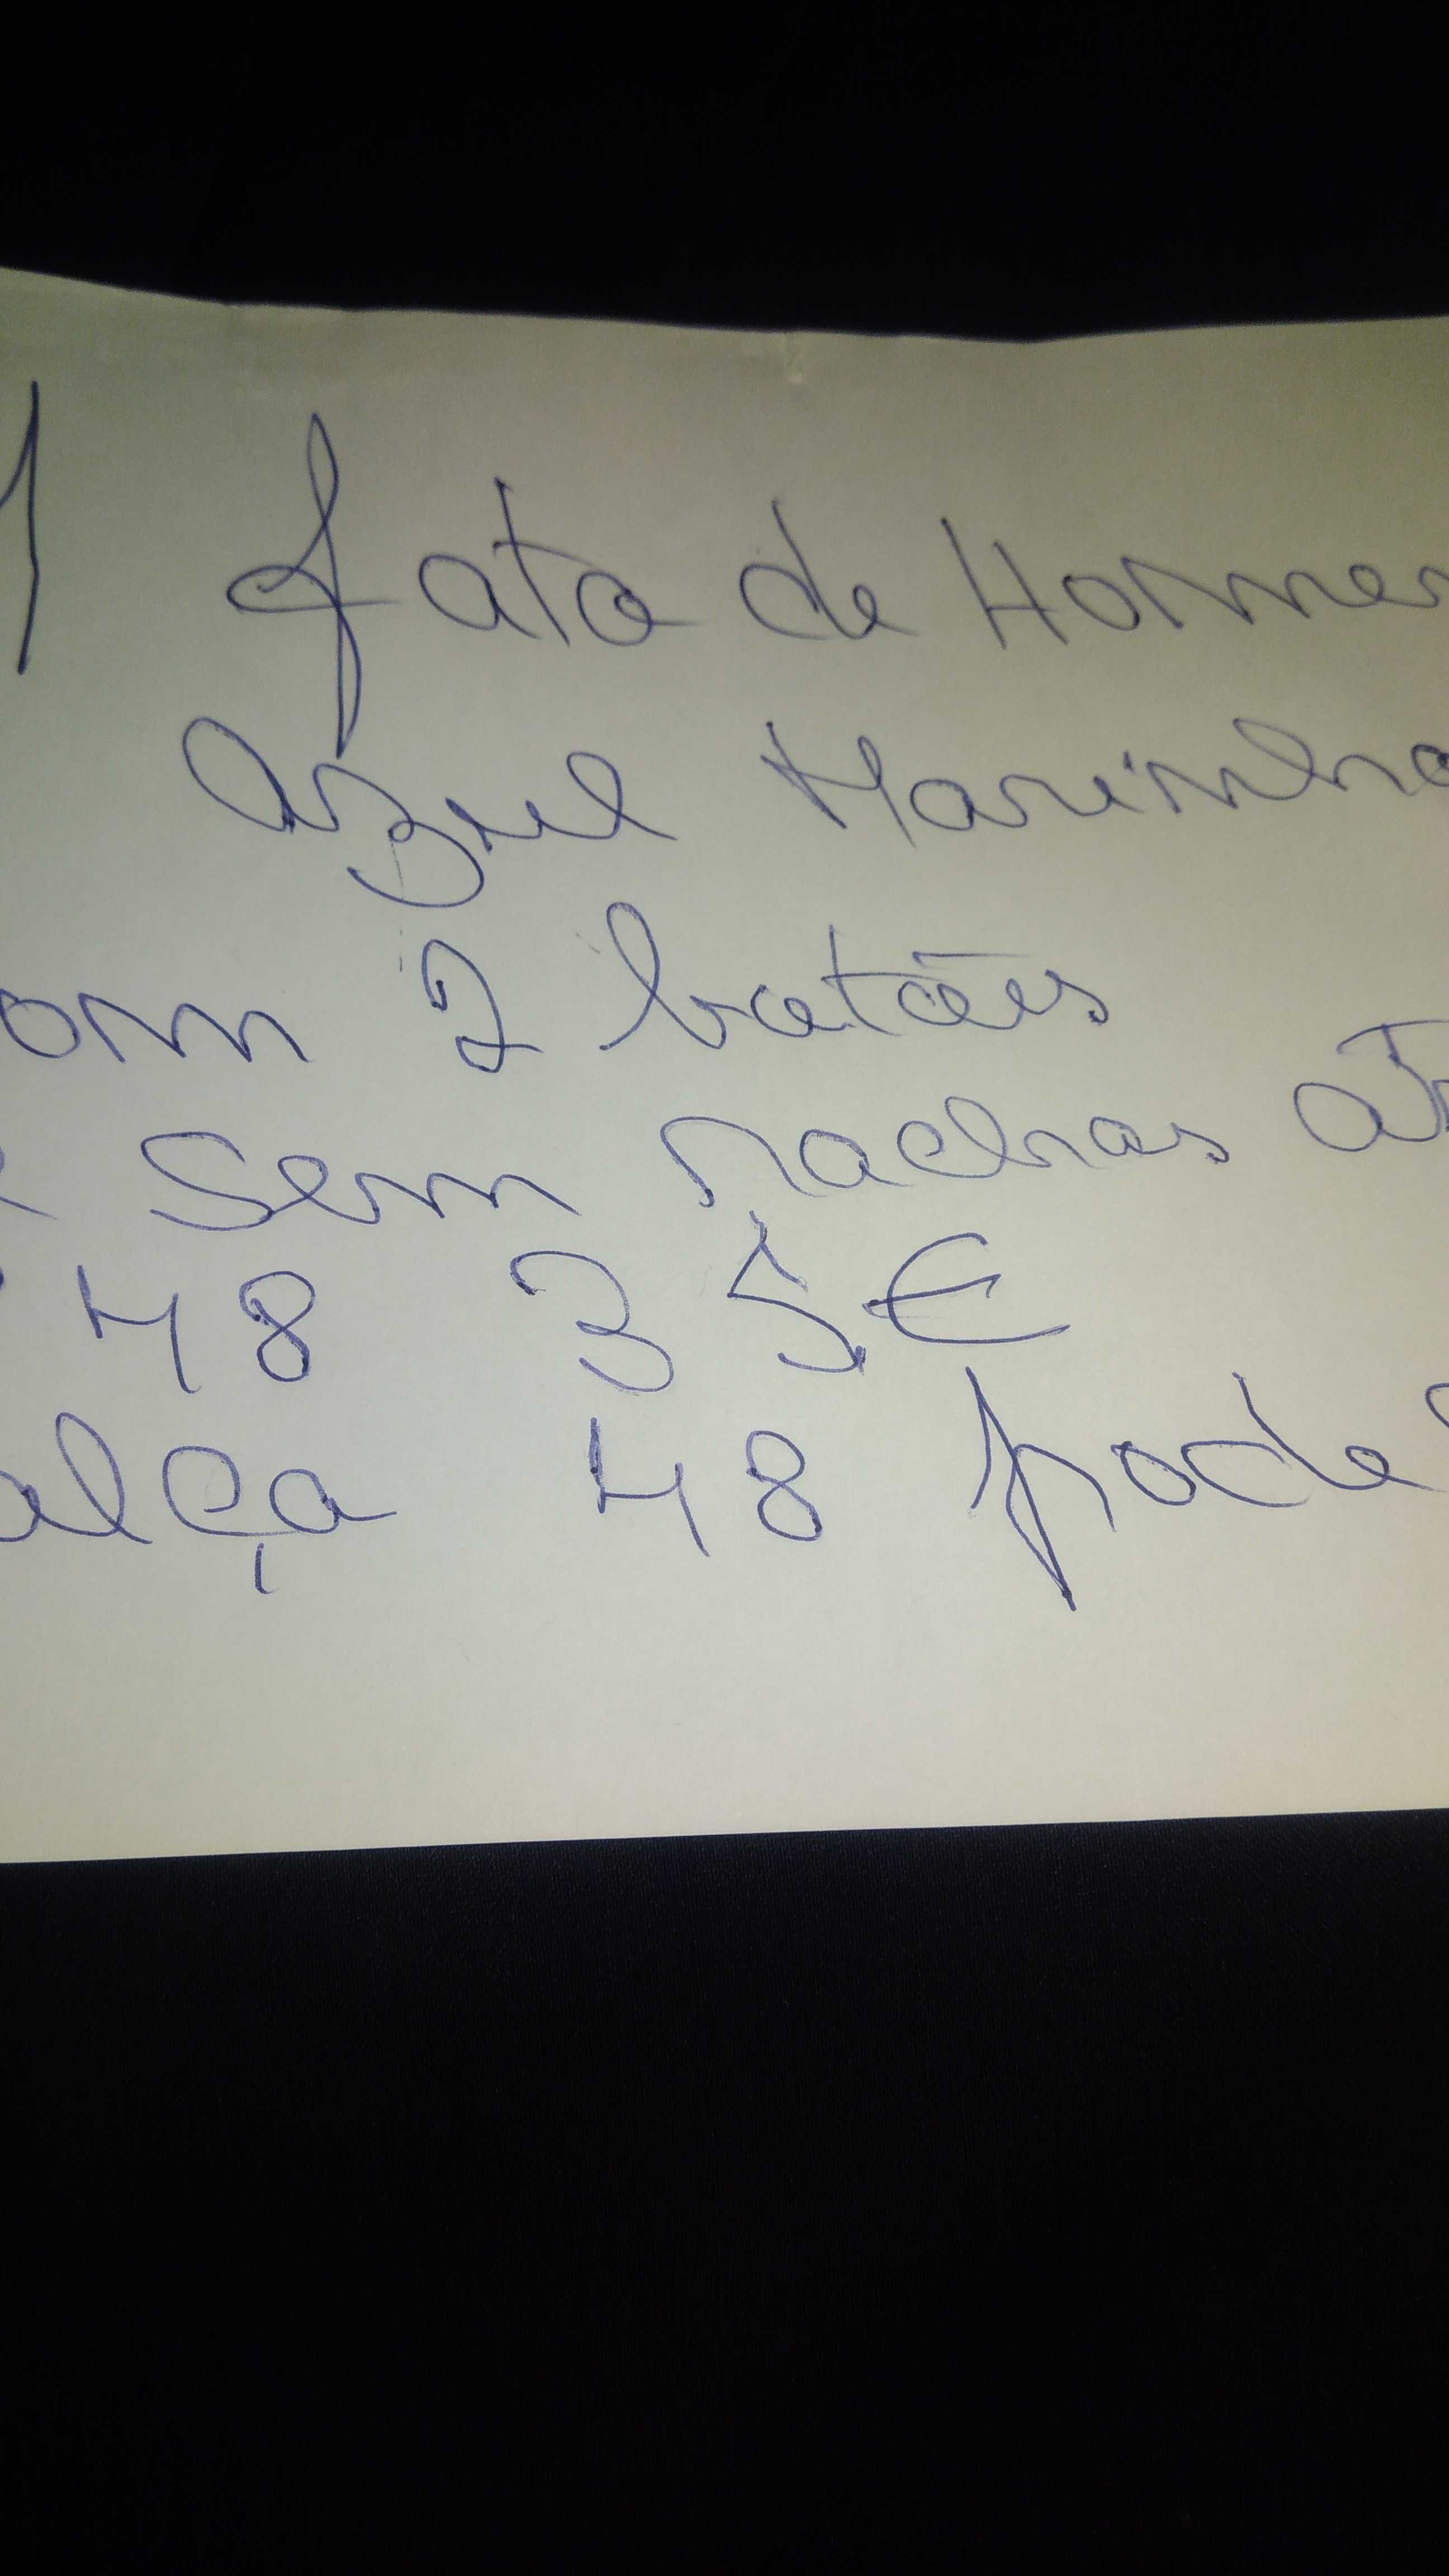 1 fato de Homem
Azul Marinho
com 2 botões
e sem rachas atr
48 35€
calça 48 pode